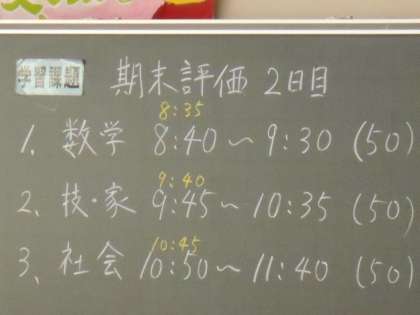 学習課題 期末評価 2日目
8:35
1、数学 8:40 ~ 9:30 (50)
9:40
2、技・家 9:45 ~ 10:35 (50)
10:45
3、社会 10:50 ~ 11:40 (50)